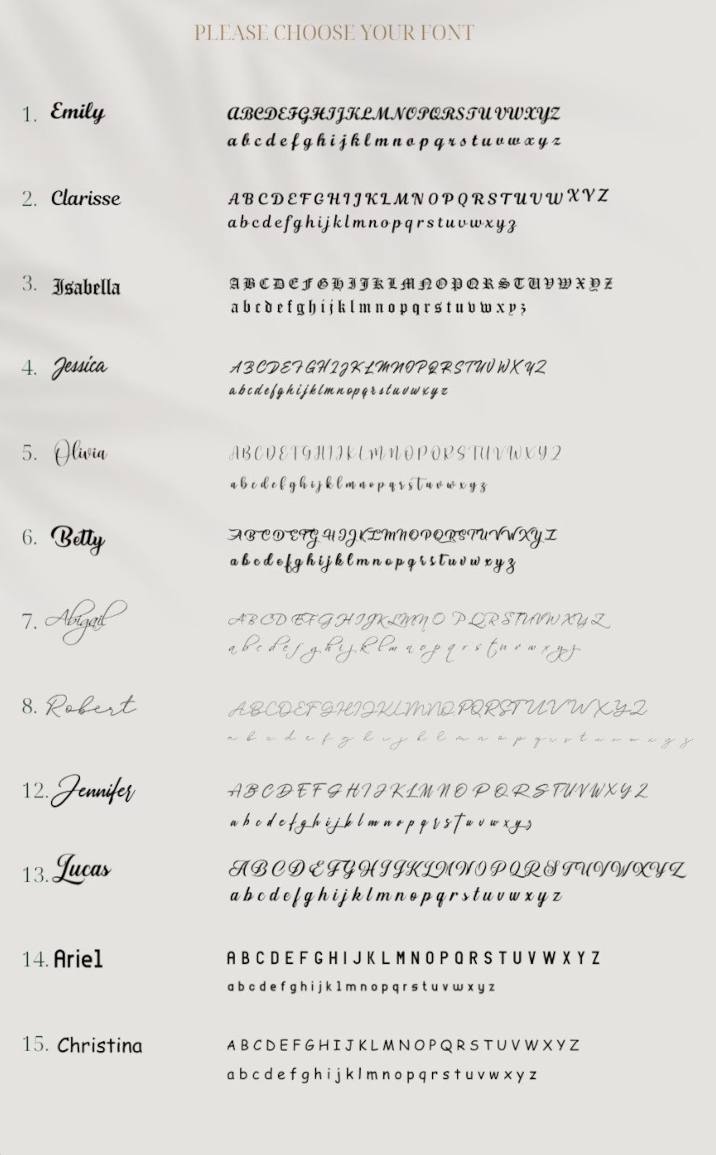 PLEASE CHOOSE YOUR FONT
1. Emily
ABCDEFGHIJKLMNOPQRSTUVWXYZ
abcdefghijklmnopqrstuvwxyz
2. Clarisse
ABCDEFGHIJKLMNOPQRSTUVWXYZ
abcdefghijklmnopqrstuvwxyz
3. Isabella
ABCDEFGHIJKLMNOPQRSTUVWXYZ
abcdefghijklmnopqrstuvwxyz
4. Jessica
ABCDEFGHIJKLMNOPQRSTUVWXYZ
abcdefghijklmnopqrstuvwxyz
5. Olivia
ABCDEFGHIJKLMNOPQRSTUVWXYZ
abcdefghijklmnopqrstuvwxyz
6. Betty
ABCDEFGHIJKLMNOPQRSTUVWXYZ
abcdefghijklmnopqrstuvwxyz
7. Abigail
ABCDEFGHIJKLMNOPQRSTUVWXYZ
abcdefghijklmnopqrstuvwxyz
8. Robert
ABCDEFGHIJKLMNOPQRSTUVWXYZ
abcdefghijklmnopqrstuvwxyz
12. Jennifer
ABCDEFGHIJKLMNOPQRSTUVWXYZ
abcdefghijklmnopqrstuvwxyz
13. Lucas
ABCDEFGHIJKLMNOPQRSTUVWXYZ
abcdefghijklmnopqrstuvwxyz
14. Ariel
ABCDEFGHIJKLMNOPQRSTUVWXYZ
abcdefghijklmnopqrstuvwxyz
15. Christina
ABCDEFGHIJKLMNOPQRSTUVWXYZ
abcdefghijklmnopqrstuvwxyz